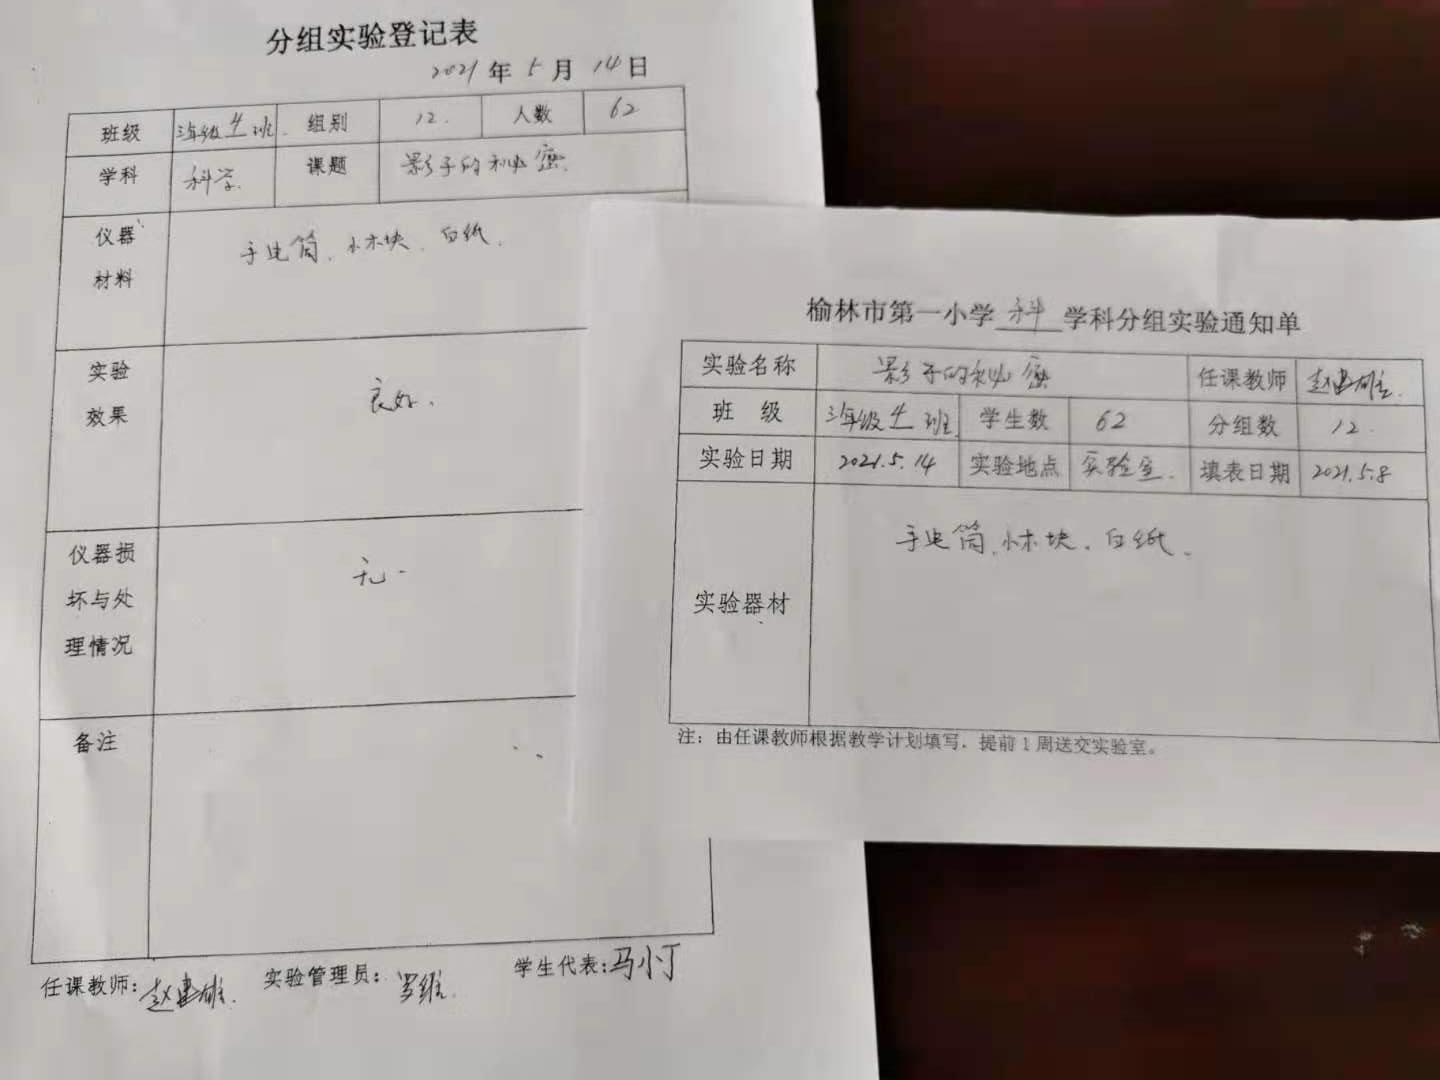 分组实验登记表
2021年5月14日
班级 三年级4班. 组别 12. 人数 62
学科 科学. 课题 影子的秘密.
仪器材料 手电筒、小木块、白纸.
实验效果 良好.
仪器损坏与处理情况 无.
备注
任课教师:赵建雄. 实验管理员:罗维. 学生代表:马小丁
榆林市第一小学 科 学科分组实验通知单
实验名称 影子的秘密 任课教师 赵建雄.
班 级 三年级4班. 学生数 62 分组数 12.
实验日期 2021.5.14 实验地点 实验室. 填表日期 2021.5.8
实验器材 手电筒、小木块、白纸、
注：由任课教师根据教学计划填写，提前1周送交实验室。